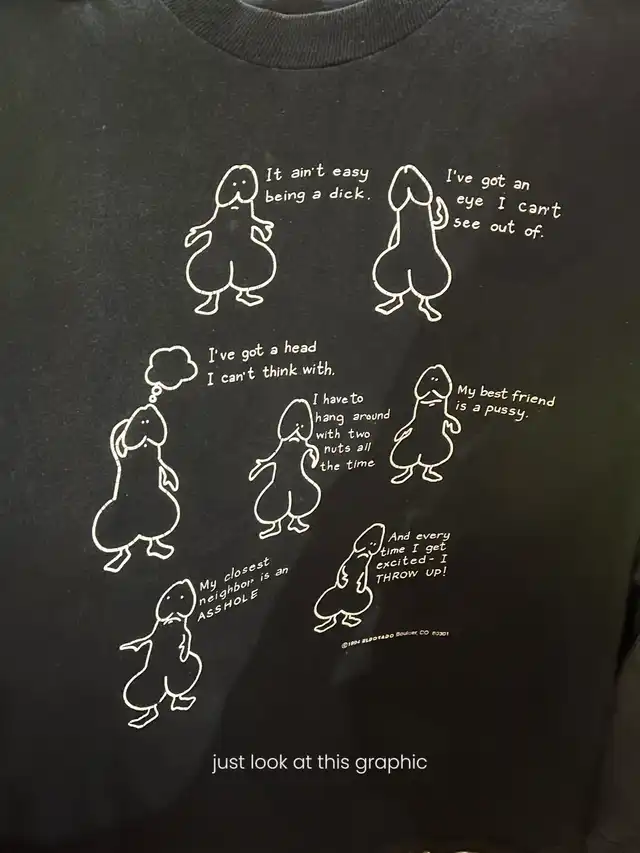 It ain't easy
being a dick.
I've got an
eye I can't
see out of.
I've got a head
I can't think with.
I have to
hang around
with two
nuts all
the time
My best friend
is a pussy.
And every
time I get
excited - I
THROW UP!
My closest
neighbor is an
ASSHOLE
©1994 ELDORADO Boulder, CO 80301
just look at this graphic